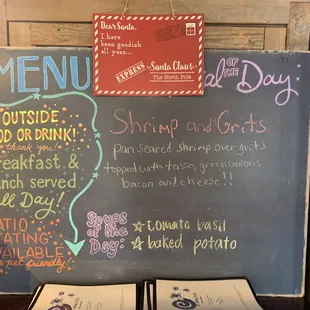 Dear Santa,
I have
been goodish
all year...
EXPRESS
To
Santa Claus
The North Pole
MENU
OUTSIDE
OD OR DRINK!
thank you!
eakfast &
nch served
ll Day!
ATIO
EATING
AVAILABLE
pet friendly!
al OF THE Day
Shrimp and Grits
pan seared shrimp over grits
topped with tasso, green onions
bacon and cheese!!
Soups
of the
Day:
tomato basil
baked potato